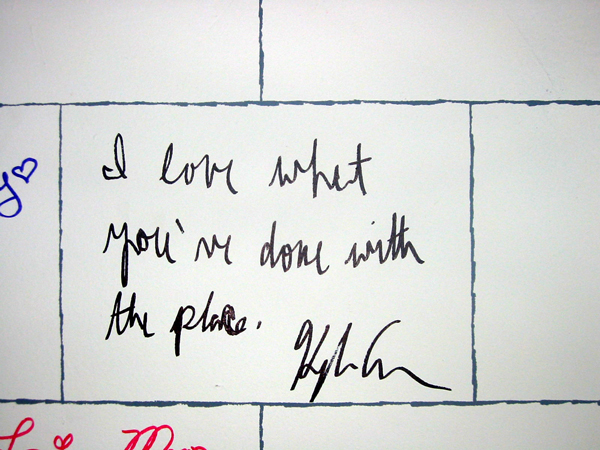 I love what
you've done with
the place.